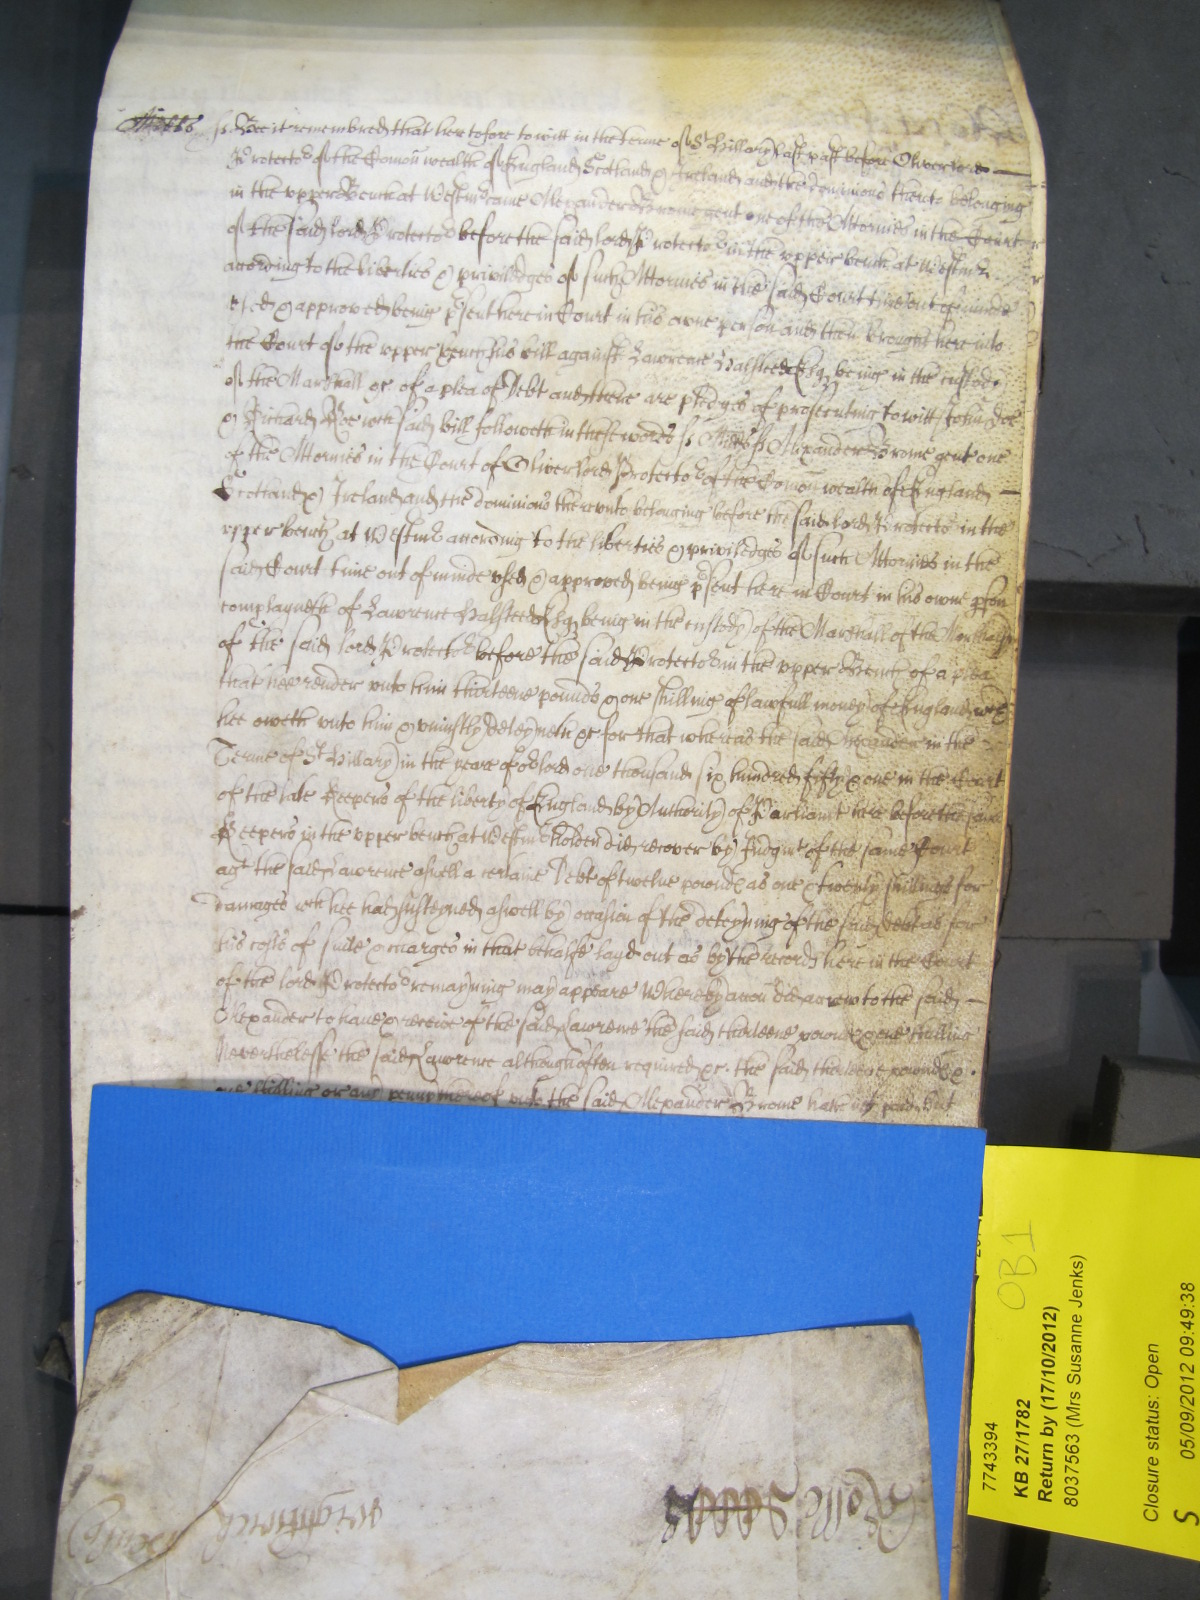 Midds ss. Bee it remembred that heretofore to witt in the terme of St Hillary last past before Oliver lord
Protector of the Comon wealth of England Scotland & Ireland and the dominions thereto belonging
in the upper Bench at Westmr came Alexander Brome gent one of the Attornies in the Court
of the said lord Protector before the said lord Protector in the upper bench at Westmr
according to the liberties & priviledges of such Attornies in the said Court time out of minde
used & approved being psent here in Court in his owne person and then brought here into
the Court of the upper bench his bill against Lawrence Halsteed Esq being in the custody
of the Marshall &c of a plea of Debt and there are pledges of prosecuting to witt John Doe
& Richard Roe wch said bill followeth in these words ss Midds ss Alexander Brome gent one
of the Attornies in the Court of Oliver lord Protector of the Comon wealth of England
Scotland & Ireland and the dominions thereunto belonging before the said lord Protector in the
upper bench at Westmr according to the liberties & priviledges of such Attornies in the
said Court time out of minde used & approved being psent here in Court in his owne pson
complayneth of Lawrence Halsteed Esq being in the custody of the Marshall of the Marshalsy
of the said lord Protector before the said Protector in the upper Bench of a plea
that hee render unto him thirteene pounds & one shilling of lawfull money of England wch
hee oweth unto him & uniustly deteyneth &c for that whereas the said Alexander in the
Terme of St Hillary in the yeare of or lord one thousand six hundred fifty & one in the Court
of the late Keepers of the liberty of England by Authority of Parliamt here before the same
Keepers in the upper bench at Westmr holden did recover by Judgmt of the same Court
agt the said Lawrence aswell a certaine Debt of twelve pounds as one & twenty shillings for
damages wch hee had susteyned aswell by occasion of the deteyning of the said debt as for
his costs of suite & charges in that behalfe layd out as by the record here in the Court
of the lord Protector remayning may appeare Whereby accon did accrew to the said
Alexander to have & receive of the said Lawrence the said thirteene pounds & one shilling
Neverthelesse the said Lawrence although often required &c. the said thirteene pounds &
one shilling or any penny thereof unto the said Alexander Brome hath not paid, but
7743394
KB 27/1782
Return by (17/10/2012)
8037563 (Mrs Susanne Jenks)
Closure status: Open
05/09/2012 09:49:38
S
OB1
Rolle
wrightwick